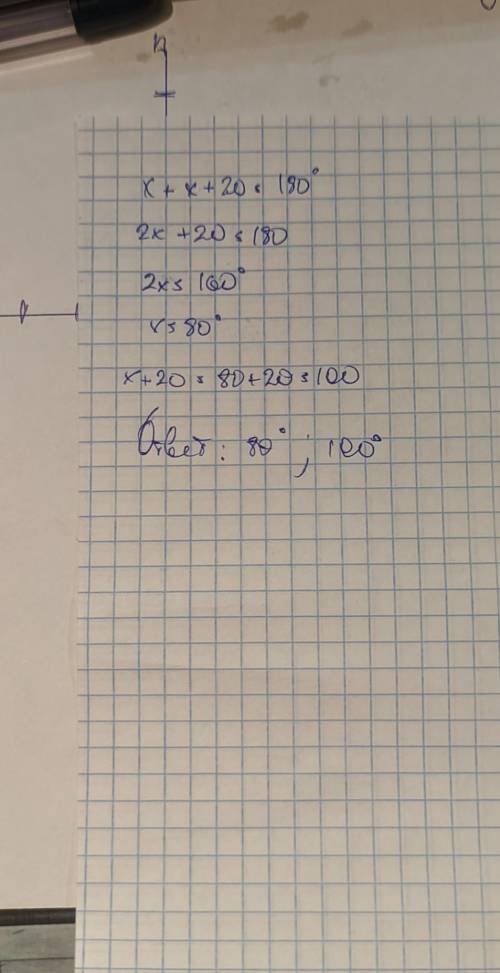 x + x + 20 = 180°
2x + 20 = 180
2x = 160°
x = 80°
x + 20 = 80 + 20 = 100
Ответ: 80° ; 100°